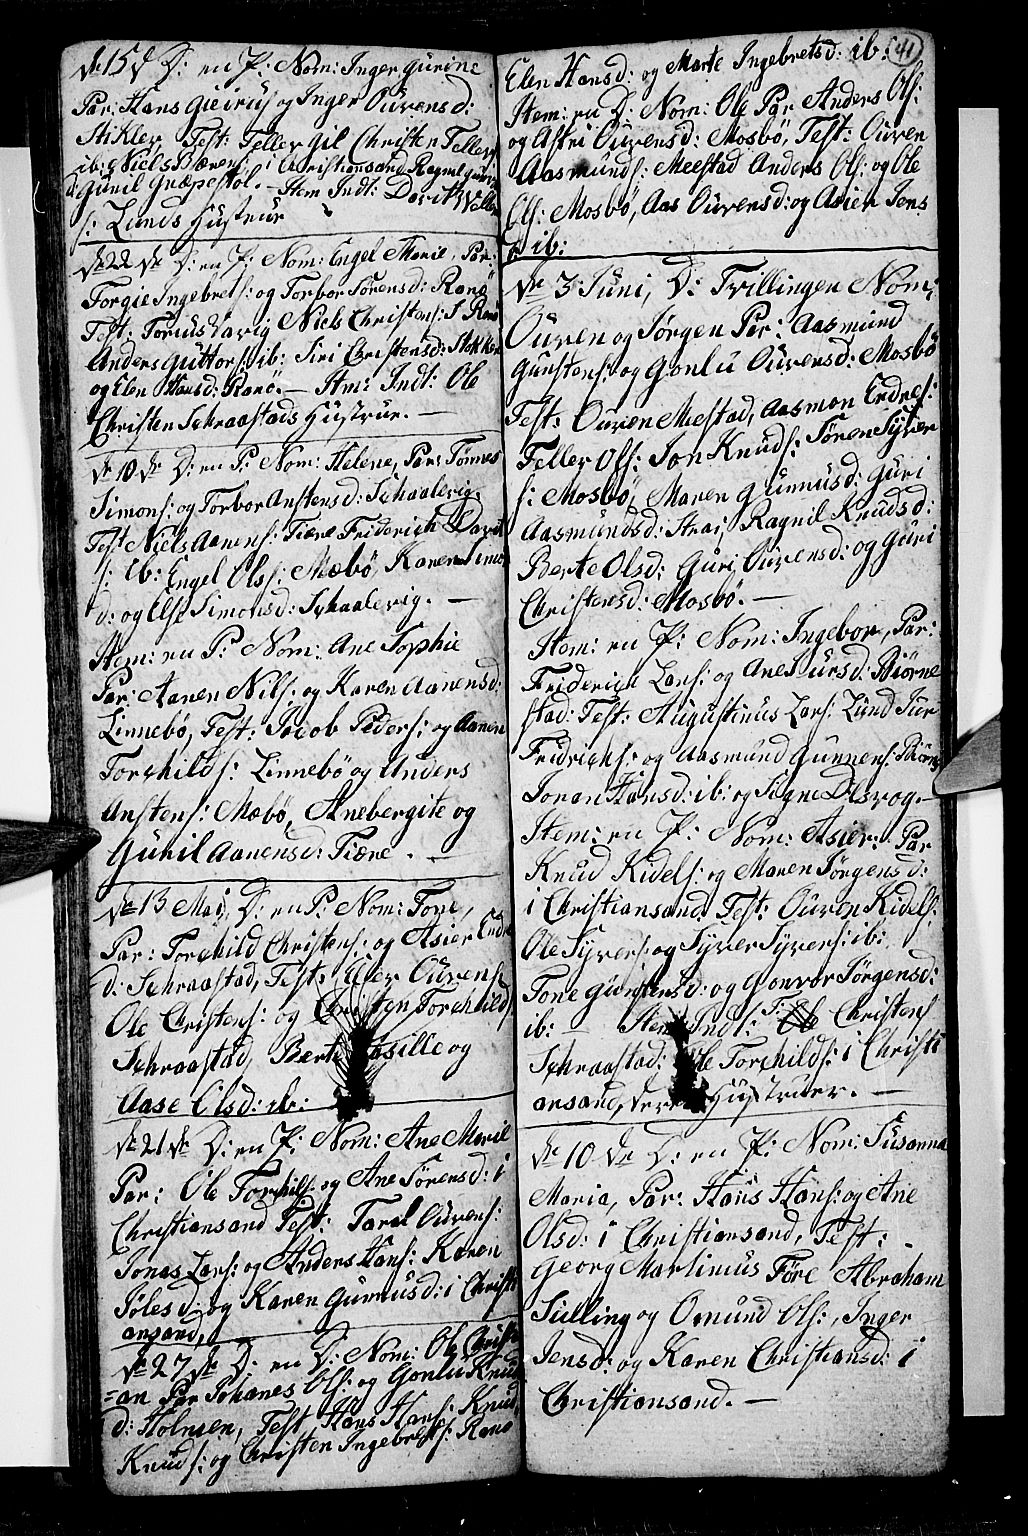 de 15 de D: en P: Nom: Inger Gurine
Par: Hans Gieirus og Inger Ouvensd:
Stikler, Test: Teller Gil Christen Tellers:
ib: Niels Bærens: i Christiansand Ragnil
Gunil Gnæpestøl. – Item Indl: Davit
s: Lunds Hustrue
de 22 de D: en P: Nom: Engel Marie, Par:
Torgie Ingebrets: og Torbor Sørensd: Ranø
Test: Torius Navig Niels Christens: Ranø
Anders Guttors: ib: Siri Christensd: Stokken
og Elen Hansd: Ranø. – Item: Indl: Ole
Christen Schraastads Hustrue. –
de 10 de D: en P: Nom: Helene, Par: Tønnes
Simons: og Torbor Anstensd: Schaalevig.
Test Niels Aanens: Tiære Friderich
s: ib: Engel Olss: Mæbø, Karen
d: og Else Simonsd: Schaalevig. –
Item: en P: Nom: Ane Sophie
Par: Aanen Nils: og Karen Aanensd:
Linnebø, Test: Jacob Peders: og Aanen
Torchilds: Linnebø og Anders
Anstens: Mæbø, Anebergite og
Guril Aanensd: Tiære. –
de 13 Maj, D: en P: Nom: Tone,
Par: Torchild Christens: og Asier
d: Schraastad, Test: Ouvens
Ole Christens: og Christen Torchilds
Schraastad, Berte Casille og
Aase Olsd: ib:
de 21 de D: en P: Nom: Ane Marie
Par: Ole Torchils: og Ane Sørensd: i
Christiansand Test: Tarel Ouvens:
Jonas Lars: og Anders Hans: Karen
Søles d: og Karen Gunusd: i Christi
ansand,
de 27 de D: en D: Nom: Ole Christi
=an Par Johanes Ols: og Gonlu Knud
d: Holmen, Test Hans Hans: Knud
Knuds: og Christen Ingebrets: Ranø
41
Elen Hansd: og Marte Ingebretsd: ib:
Item: en D: Nom: Ole Par Anders Ols:
og Astri Ouvensd: Mosbø, Test: Ouven
Aasmunds: Meestad Anders Ols: og Ole
Ols: Mosbø, Aas Ouvensd: og Asien Jens
ib:
de 3 Juni, D: Tvillingen Nom:
Ouven og Jørgen Par: Aasmund
Gunstens: og Gonlu Ouvensd: Mosbø
Test: Ouven Meestad, Aasmon Endres:
Teller Ols: Jon Knuds: Søren Syver
s: Mosbø, Maren Gunnusd: Guri
Aasmundsd: Strai, Ragnil Knudsd:
Berte Olsd: Guri Ouvensd: og Guri
Christensd: Mosbø. –
Item: en P: Nom: Ingebor, Par:
Friderich Lars: og Ane Jursd: Biørne
stad: Test: Augustinus Lars: Lund Jur
Fridrichs: og Aasmund Gunnens: Biørns
Jonan Hansd: ib: og Signe Dlsvog. –
Item: en P: Nom: Asier: Par
Knud Kidels: og Maren Jørgensd:
i Christiansand Test: Ouven Kidels:
Ole Syvers: og Syver Syvers: ib:
Tone Gunstensd: og Gonvor Jørgensd:
ib: Item Indl: Christens
Schraastad: Ole Torchilds: i Christi
ansand, deres Hustruer. –
de 10 de D: en P: Nom: Susanna
Maria, Par: Hans Hans: og Ane
Olsd: i Christiansand, Test:
Georg Martinius Føre Abraham
Sulling og Omund Ols:, Inger
Jensd: og Karen Christiansd: i
Christiansand. –